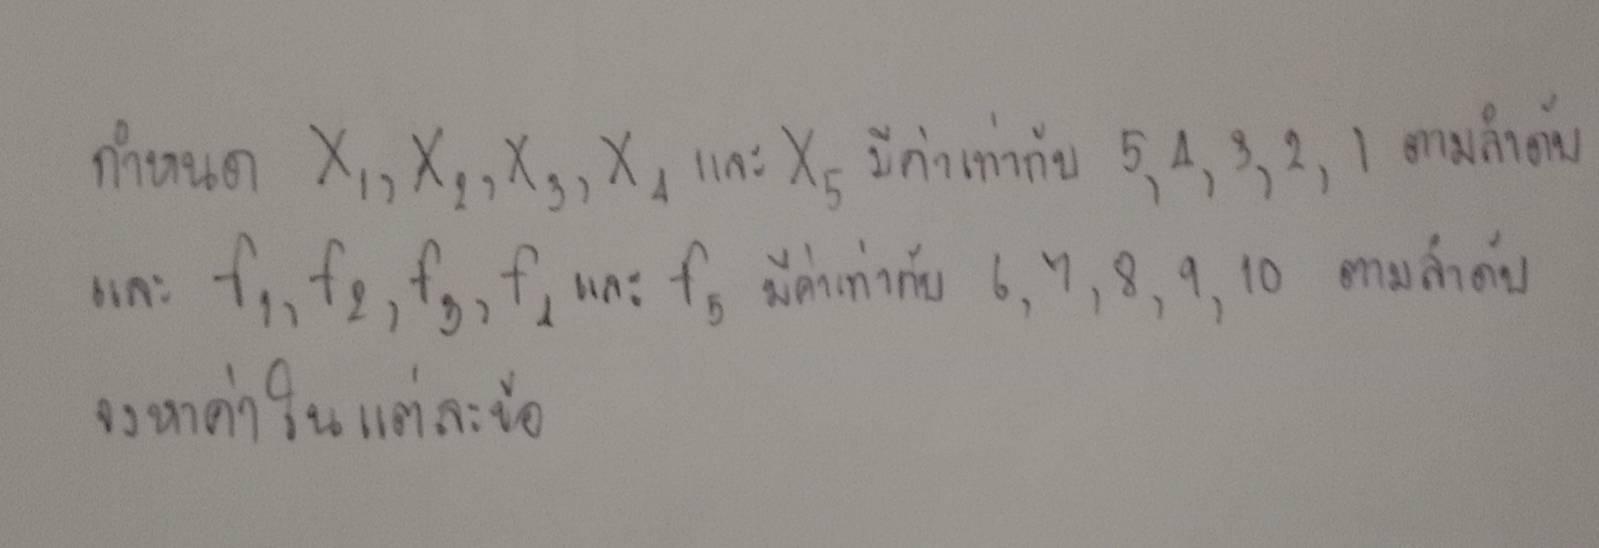 กำหนด X₁, X₂, X₃, X₄ และ X₅ มีค่าเท่ากับ 5, 4, 3, 2, 1 ตามลำดับ
และ f₁, f₂, f₃, f₄ และ f₅ มีค่าเท่ากับ 6, 7, 8, 9, 10 ตามลำดับ
จงหาค่าในแต่ละข้อ